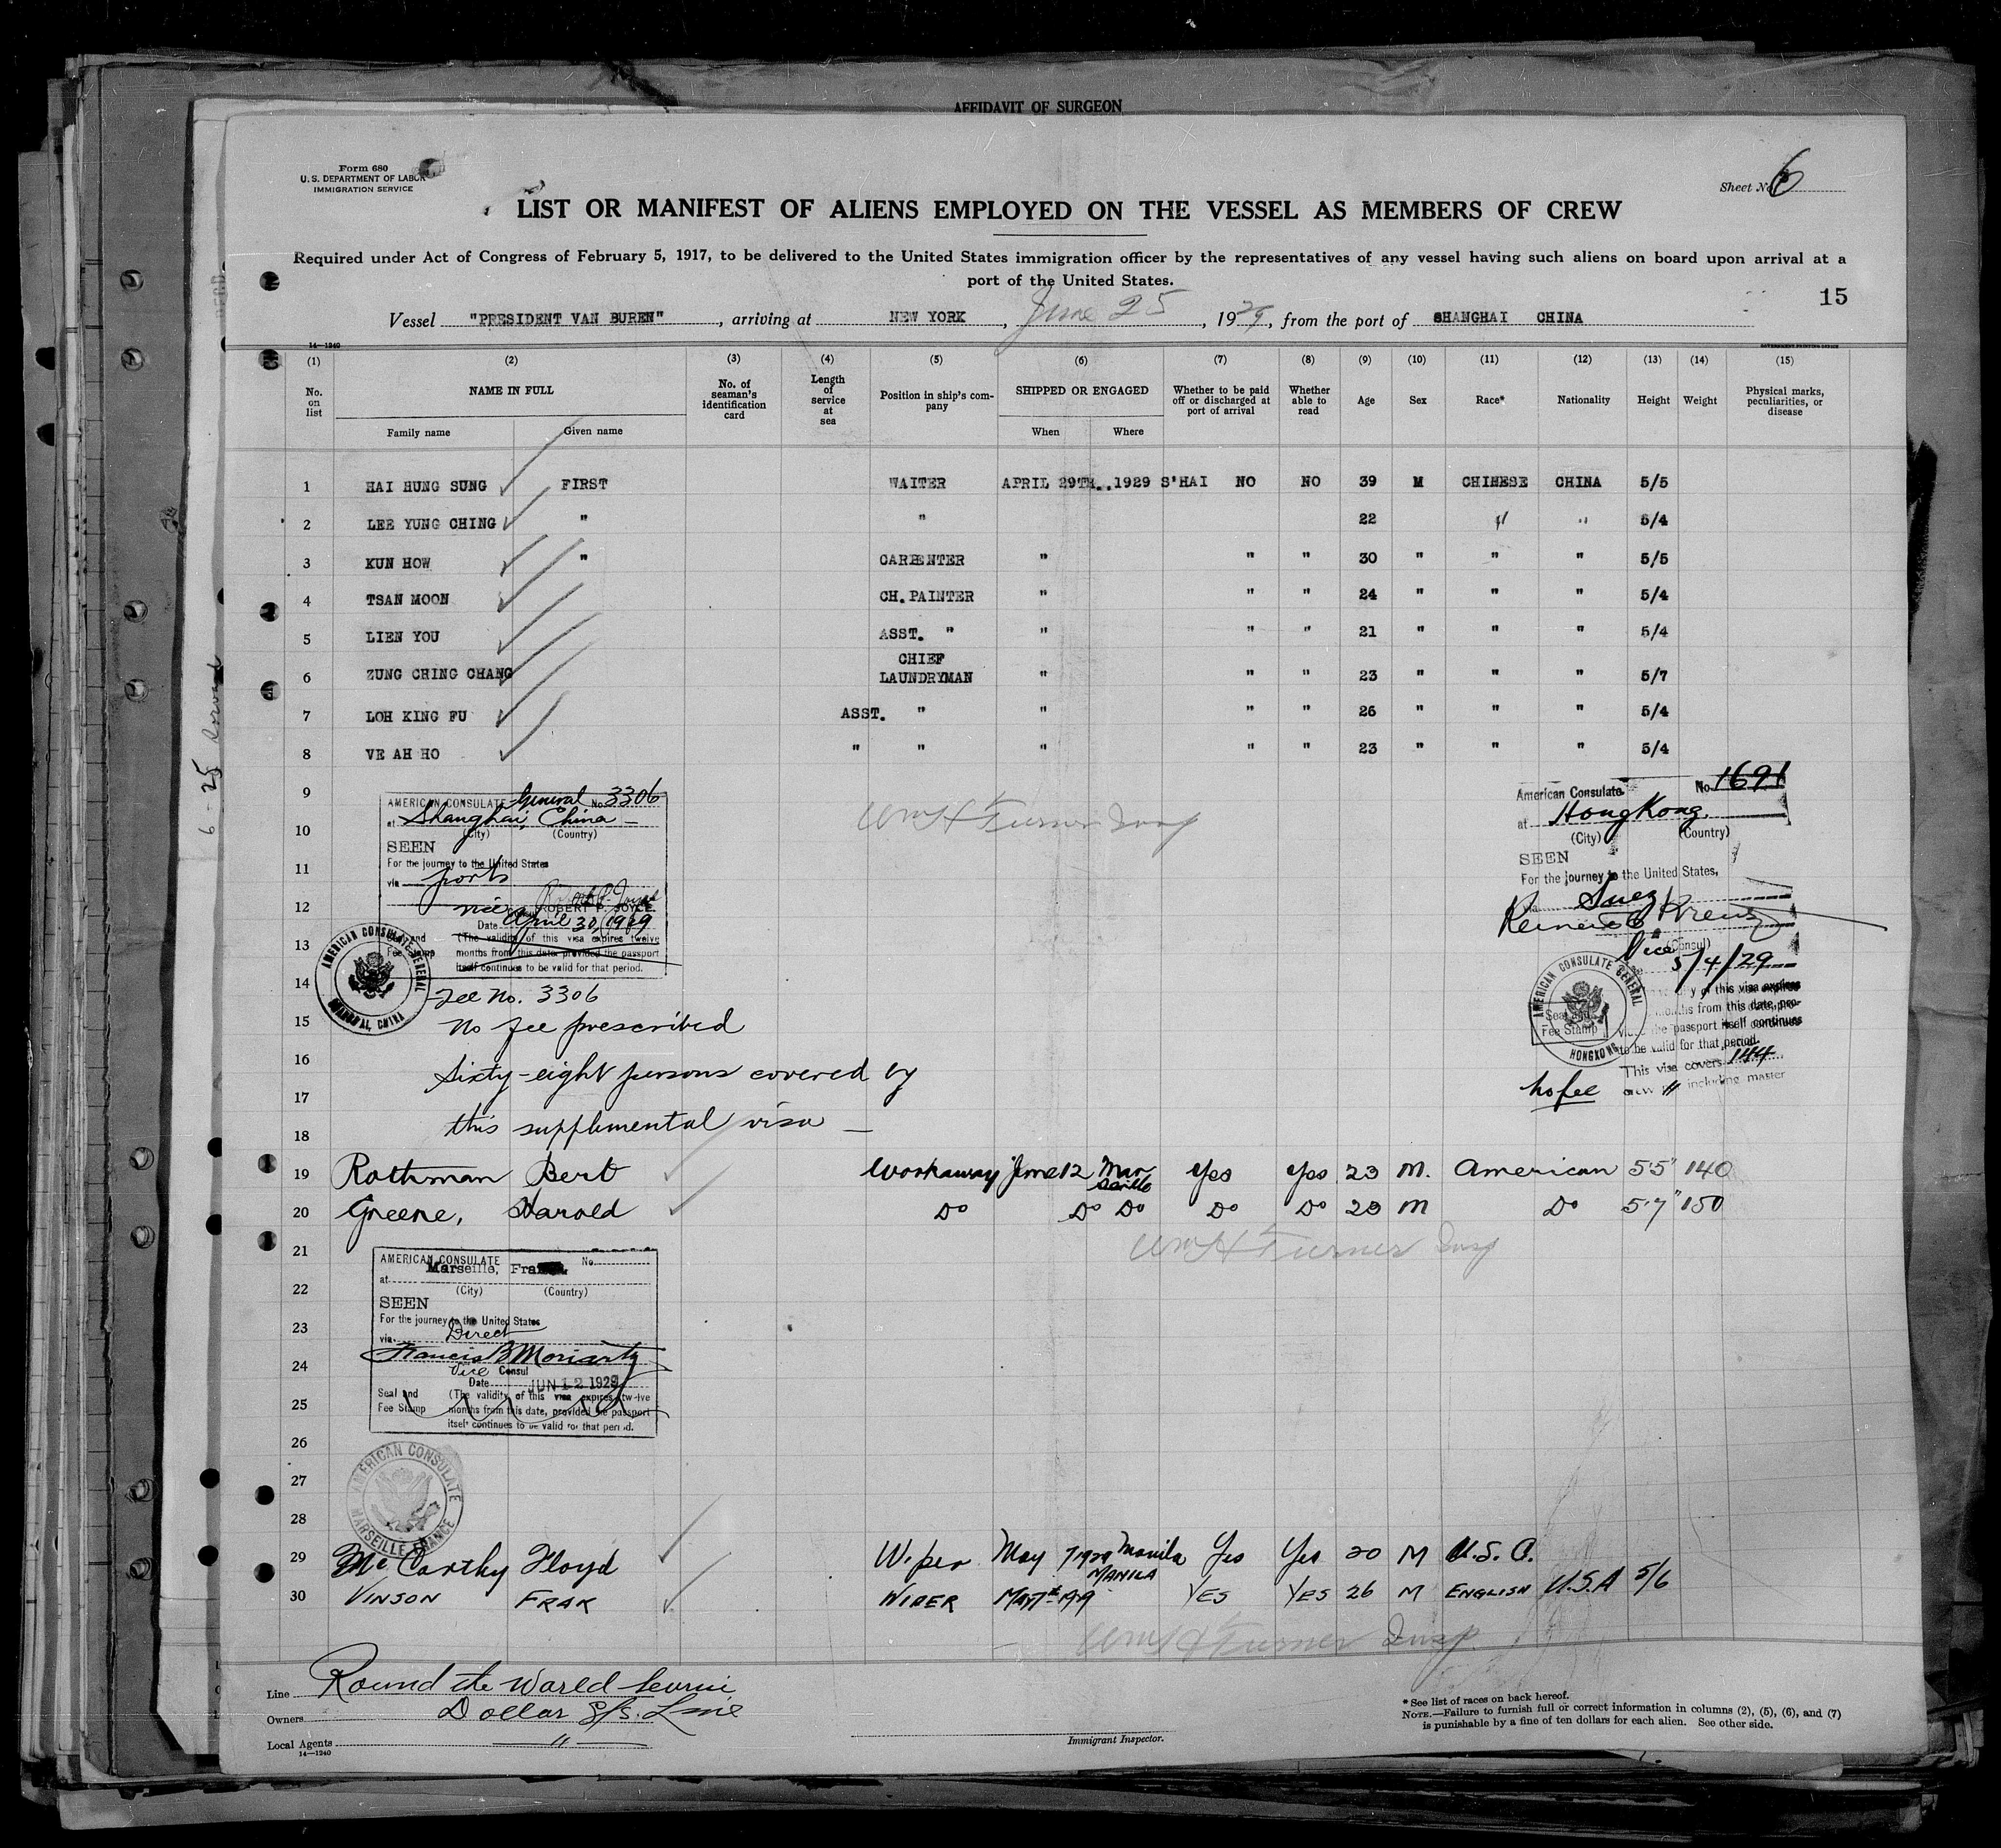 AFFIDAVIT OF SURGEON
Form 680
U. S. DEPARTMENT OF LABOR
IMMIGRATION SERVICE
Sheet No. 6
LIST OR MANIFEST OF ALIENS EMPLOYED ON THE VESSEL AS MEMBERS OF CREW
Required under Act of Congress of February 5, 1917, to be delivered to the United States immigration officer by the representatives of any vessel having such aliens on board upon arrival at a
port of the United States.
15
Vessel "PRESIDENT VAN BUREN", arriving at NEW YORK, June 25, 1929, from the port of SHANGHAI CHINA
14—1240
GOVERNMENT PRINTING OFFICE
(1) (2) (3) (4) (5) (6) (7) (8) (9) (10) (11) (12) (13) (14) (15)
No. on list
NAME IN FULL
Family name
Given name
No. of seaman's identification card
Length of service at sea
Position in ship's company
SHIPPED OR ENGAGED
When
Where
Whether to be paid off or discharged at port of arrival
Whether able to read
Age
Sex
Race*
Nationality
Height
Weight
Physical marks, peculiarities, or disease
1 HAI HUNG SUNG FIRST WAITER APRIL 29TH..1929 S'HAI NO NO 39 M CHINESE CHINA 5/5
2 LEE YUNG CHING " " 22 " " 5/4
3 KUN HOW " CARPENTER " " " 30 " " " 5/5
4 TSAN MOON CH. PAINTER " " " 24 " " " 5/4
5 LIEN YOU ASST. " " " " 21 " " " 5/4
6 ZUNG CHING CHANG CHIEF LAUNDRYMAN " " " 23 " " " 5/7
7 LOH KING FU ASST. " " " " 26 " " " 5/4
8 VE AH HO " " " " " 23 " " " 5/4
9
10
11
12
13
14
15
16
17
18
AMERICAN CONSULATE General No. 3306
at Shanghai, China
(City) (Country)
SEEN
For the journey to the United States
via ports
ROBERT P. JOYCE
Date April 30, 1929
Seal and Fee Stamp
(The validity of this visa expires twelve
months from this date, provided the passport
itself continues to be valid for that period.
AMERICAN CONSULATE GENERAL
SHANGHAI, CHINA
Fee No. 3306
No fee prescribed
Sixty-eight persons covered by
this supplimental visa —
Wm H Turner Insp
American Consulate No. 1691
at HongKong
(City) (Country)
SEEN
For the journey to the United States,
via Suez
Vice (Consul)
5/4/29
AMERICAN CONSULATE GENERAL
HONGKONG
Seal and
Fee Stamp
y of this visa expires
months from this date, pro-
the passport itself continues
to be valid for that period.
This visa covers 144
including master
no fee
19 Rothman Bert Workaway June 12 Marseille Yes Yes 23 M. American 5'5" 140
20 Greene, Harold Do Do Do Do Do 23 M Do 5'7" 150
Wm H Turner Insp
21
22
23
24
25
26
27
28
AMERICAN CONSULATE No.
at Marseille, France
(City) (Country)
SEEN
For the journey to the United States
via Direct
Francis B Moriarty
Vice Consul
Date JUN 12 1929
Seal and Fee Stamp
(The validity of this visa expires twelve
months from this date, provided the passport
itself continues to be valid for that period.
AMERICAN CONSULATE
MARSEILLE FRANCE
29 McCarthy Floyd Wiper May 7 1929 Manila Yes Yes 20 M U.S.A.
30 VINSON FRAK WIPER MAY 7th 1929 MANILA YES YES 26 M ENGLISH U.S.A 5/6
Wm H Turner Insp.
Line Round the World Service
Owners Dollar S/S. Line
Local Agents "
14—1240
Immigrant Inspector.
* See list of races on back hereof.
NOTE.—Failure to furnish full or correct information in columns (2), (5), (6), and (7)
is punishable by a fine of ten dollars for each alien. See other side.